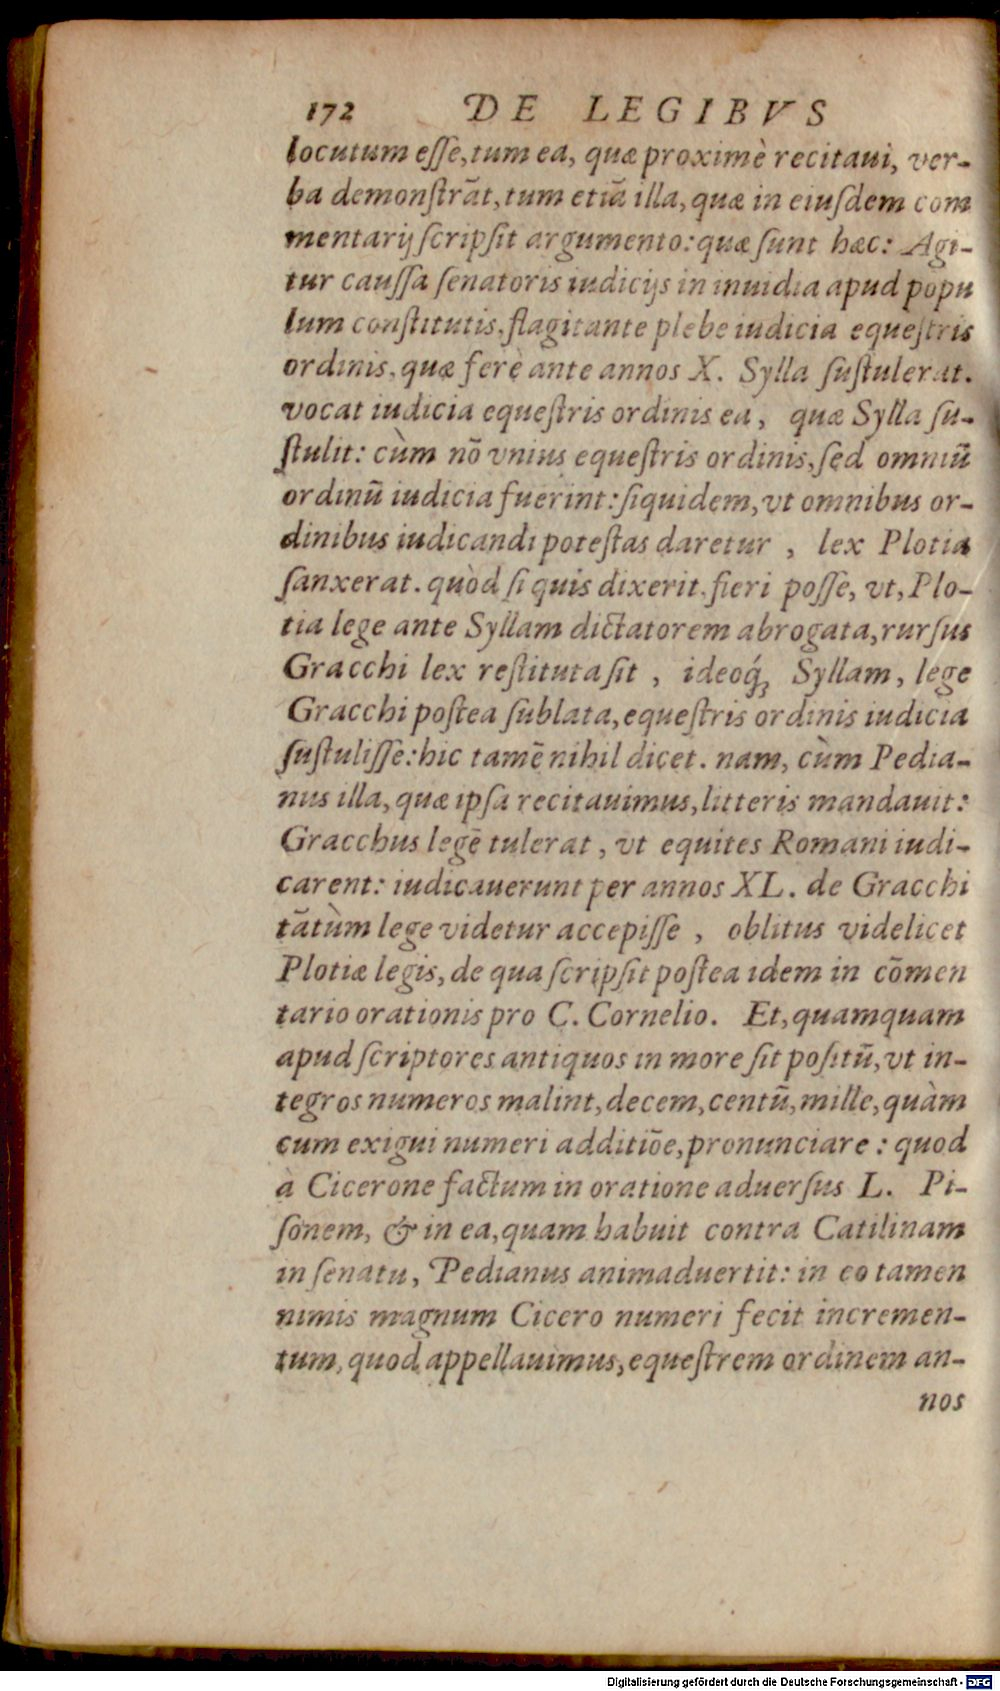 172 DE LEGIBVS
locutum eſſe, tum ea, quæ proximè recitaui, ver-
ba demonſtrãt, tum etiã illa, quæ in eiuſdem com
mentarij ſcripſit argumento: quæ ſunt hæc: Agi-
tur cauſſa ſenatoris iudicijs in inuidia apud popu
lum conſtitutis, flagitante plebe iudicia equeſtris
ordinis, quæ ferè ante annos X. Sylla ſuſtulerat.
vocat iudicia equeſtris ordinis ea, quæ Sylla ſu-
ſtulit: cùm nõ vnius equeſtris ordinis, ſed omniũ
ordinũ iudicia fuerint: ſiquidem, vt omnibus or-
dinibus iudicandi poteſtas daretur, lex Plotia
ſanxerat. quòd ſi quis dixerit, fieri poſſe, vt, Plo-
tia lege ante Syllam dictatorem abrogata, rurſus
Gracchi lex reſtituta ſit, ideoq́; Syllam, lege
Gracchi poſtea ſublata, equeſtris ordinis iudicia
ſuſtuliſſe: hic tamẽ nihil dicet. nam, cùm Pedia-
nus illa, quæ ipſa recitauimus, litteris mandauit:
Gracchus legẽ tulerat, vt equites Romani iudi-
carent: iudicauerunt per annos XL. de Gracchi
tãtùm lege videtur accepiſſe, oblitus videlicet
Plotiæ legis, de qua ſcripſit poſtea idem in cõmen
tario orationis pro C. Cornelio. Et, quamquam
apud ſcriptores antiquos in more ſit poſitũ, vt in-
tegros numeros malint, decem, centũ, mille, quàm
cum exigui numeri additiõe, pronunciare: quod
à Cicerone factum in oratione aduerſus L. Pi-
ſonem, & in ea, quam habuit contra Catilinam
in ſenatu, Pedianus animaduertit: in eo tamen
nimis magnum Cicero numeri fecit incremen-
tum, quod appellauimus, equeſtrem ordinem an-
nos
Digitalisierung gefördert durch die Deutsche Forschungsgemeinschaft - DFG